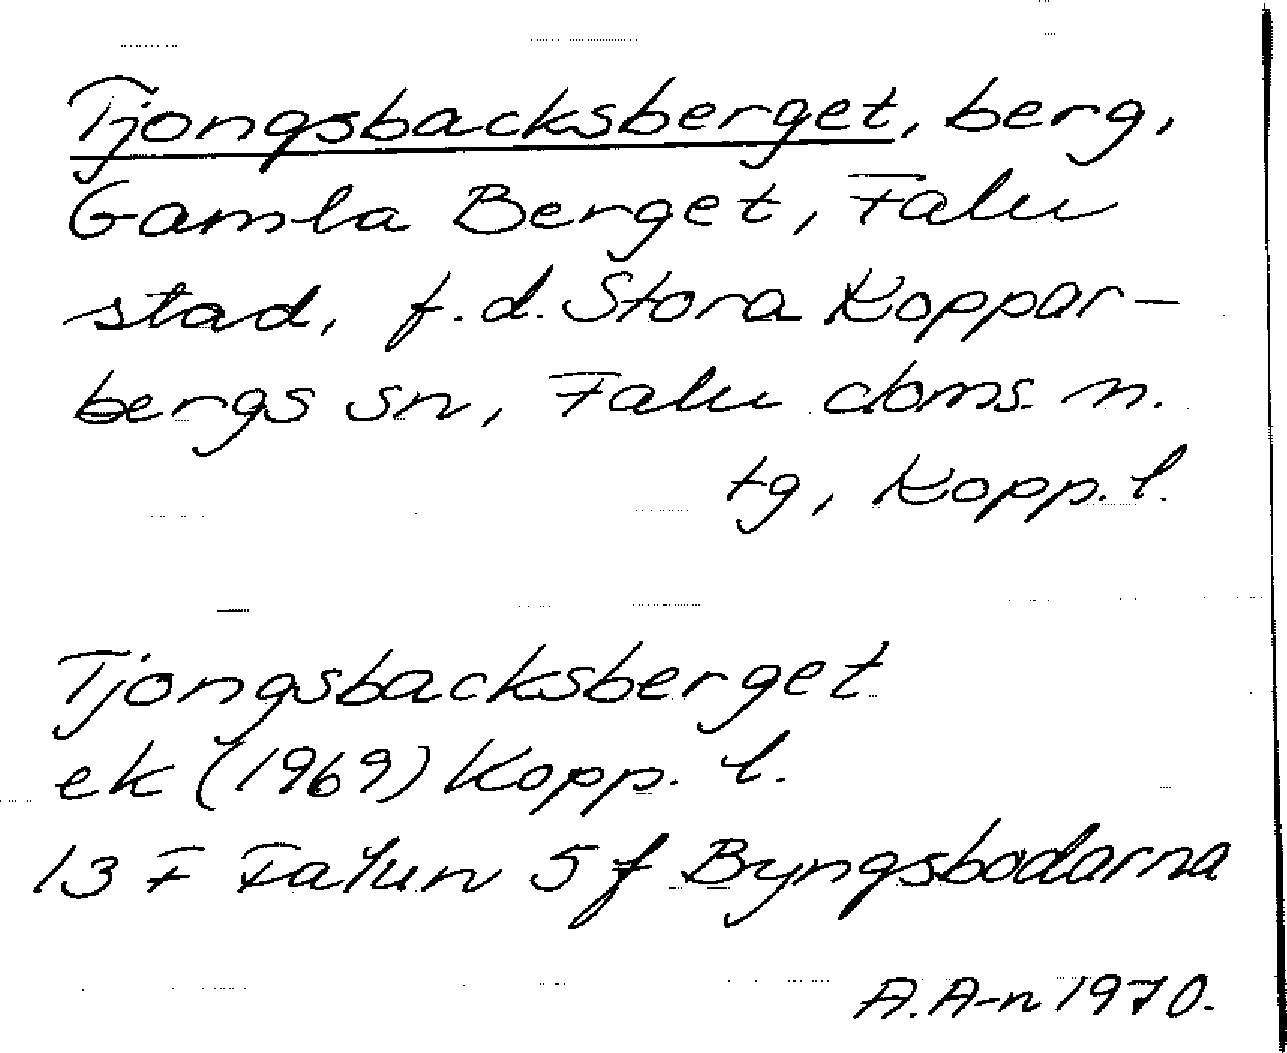 Tjongsbacksberget, berg,
Gamla Berget, Falu
stad, f.d. Stora Koppar-
bergs sn, Falu doms. n.
tg, Kopp. l.
Tjongsbacksberget
ek (1969) Kopp. l.
13 F Falun 5 f Byngsbodarna
A.A-n 1970.